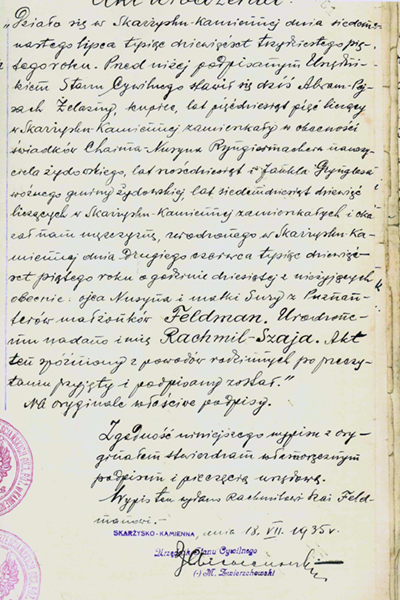 Akt urodzenia.
"Działo się w Skarżysku-Kamiennej dnia siedem-
nastego lipca tysiąc dziewięćset trzydziestego pią-
tego roku. Przed niżej podpisanym Urzędni-
kiem Stanu Cywilnego stawił się dziś Abram-Pej-
sach Żelazny, kupiec, lat pięćdziesiąt pięć liczący
w Skarżysku-Kamiennej zamieszkały w obecności
świadków Chaima-Nusyna Ryngiermachera nauczy-
ciela żydowskiego, lat sześćdziesiąt i Jankla
woźnego gminy żydowskiej, lat siedemdziesiąt dziewięć
liczących w Skarżysku-Kamiennej zamieszkałych i oka-
zał nam mężczyznę, urodzonego w Skarżysku-Ka-
miennej dnia Drugiego czerwca tysiąc dziewięć-
set piątego roku o godzinie dziesiątej z nieżyjących
obecnie: ojca Nusyna i matki Sury z Puznan-
terów małżonków Feldman. Urodzone-
mu nadano imię Rachmil-Szaja. Akt
ten spóźniony z powodów rodzinnych po przeczy-
taniu przyjęty i podpisany został."
Na oryginale właściwe podpisy.
Zgodność niniejszego wypisu z ory-
ginałem stwierdzam własnoręcznym
podpisem i pieczęcią urzędową.
Wypis ten wydano Rachmilowi Szai Feld-
manowi.-
SKARŻYSKO-KAMIENNA, dnia 18. VII. 1935 r.
Urzędnik Stanu Cywilnego
(-) M. Zwierzchowski